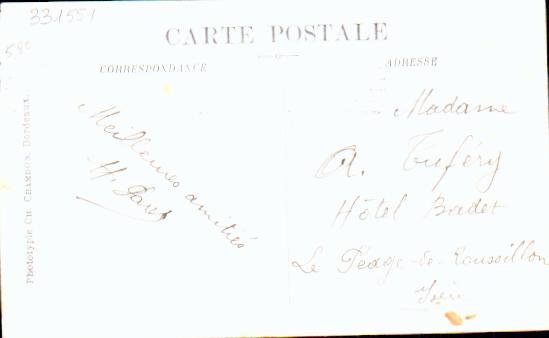 331551
580
CARTE POSTALE
CORRESPONDANCE
ADRESSE
Phototypie Ch. Chambon, Bordeaux.
Meilleures amitiés
H.
Madame
A. Tuféry
Hôtel Badet
Le Péage-de-Roussillon
Isère